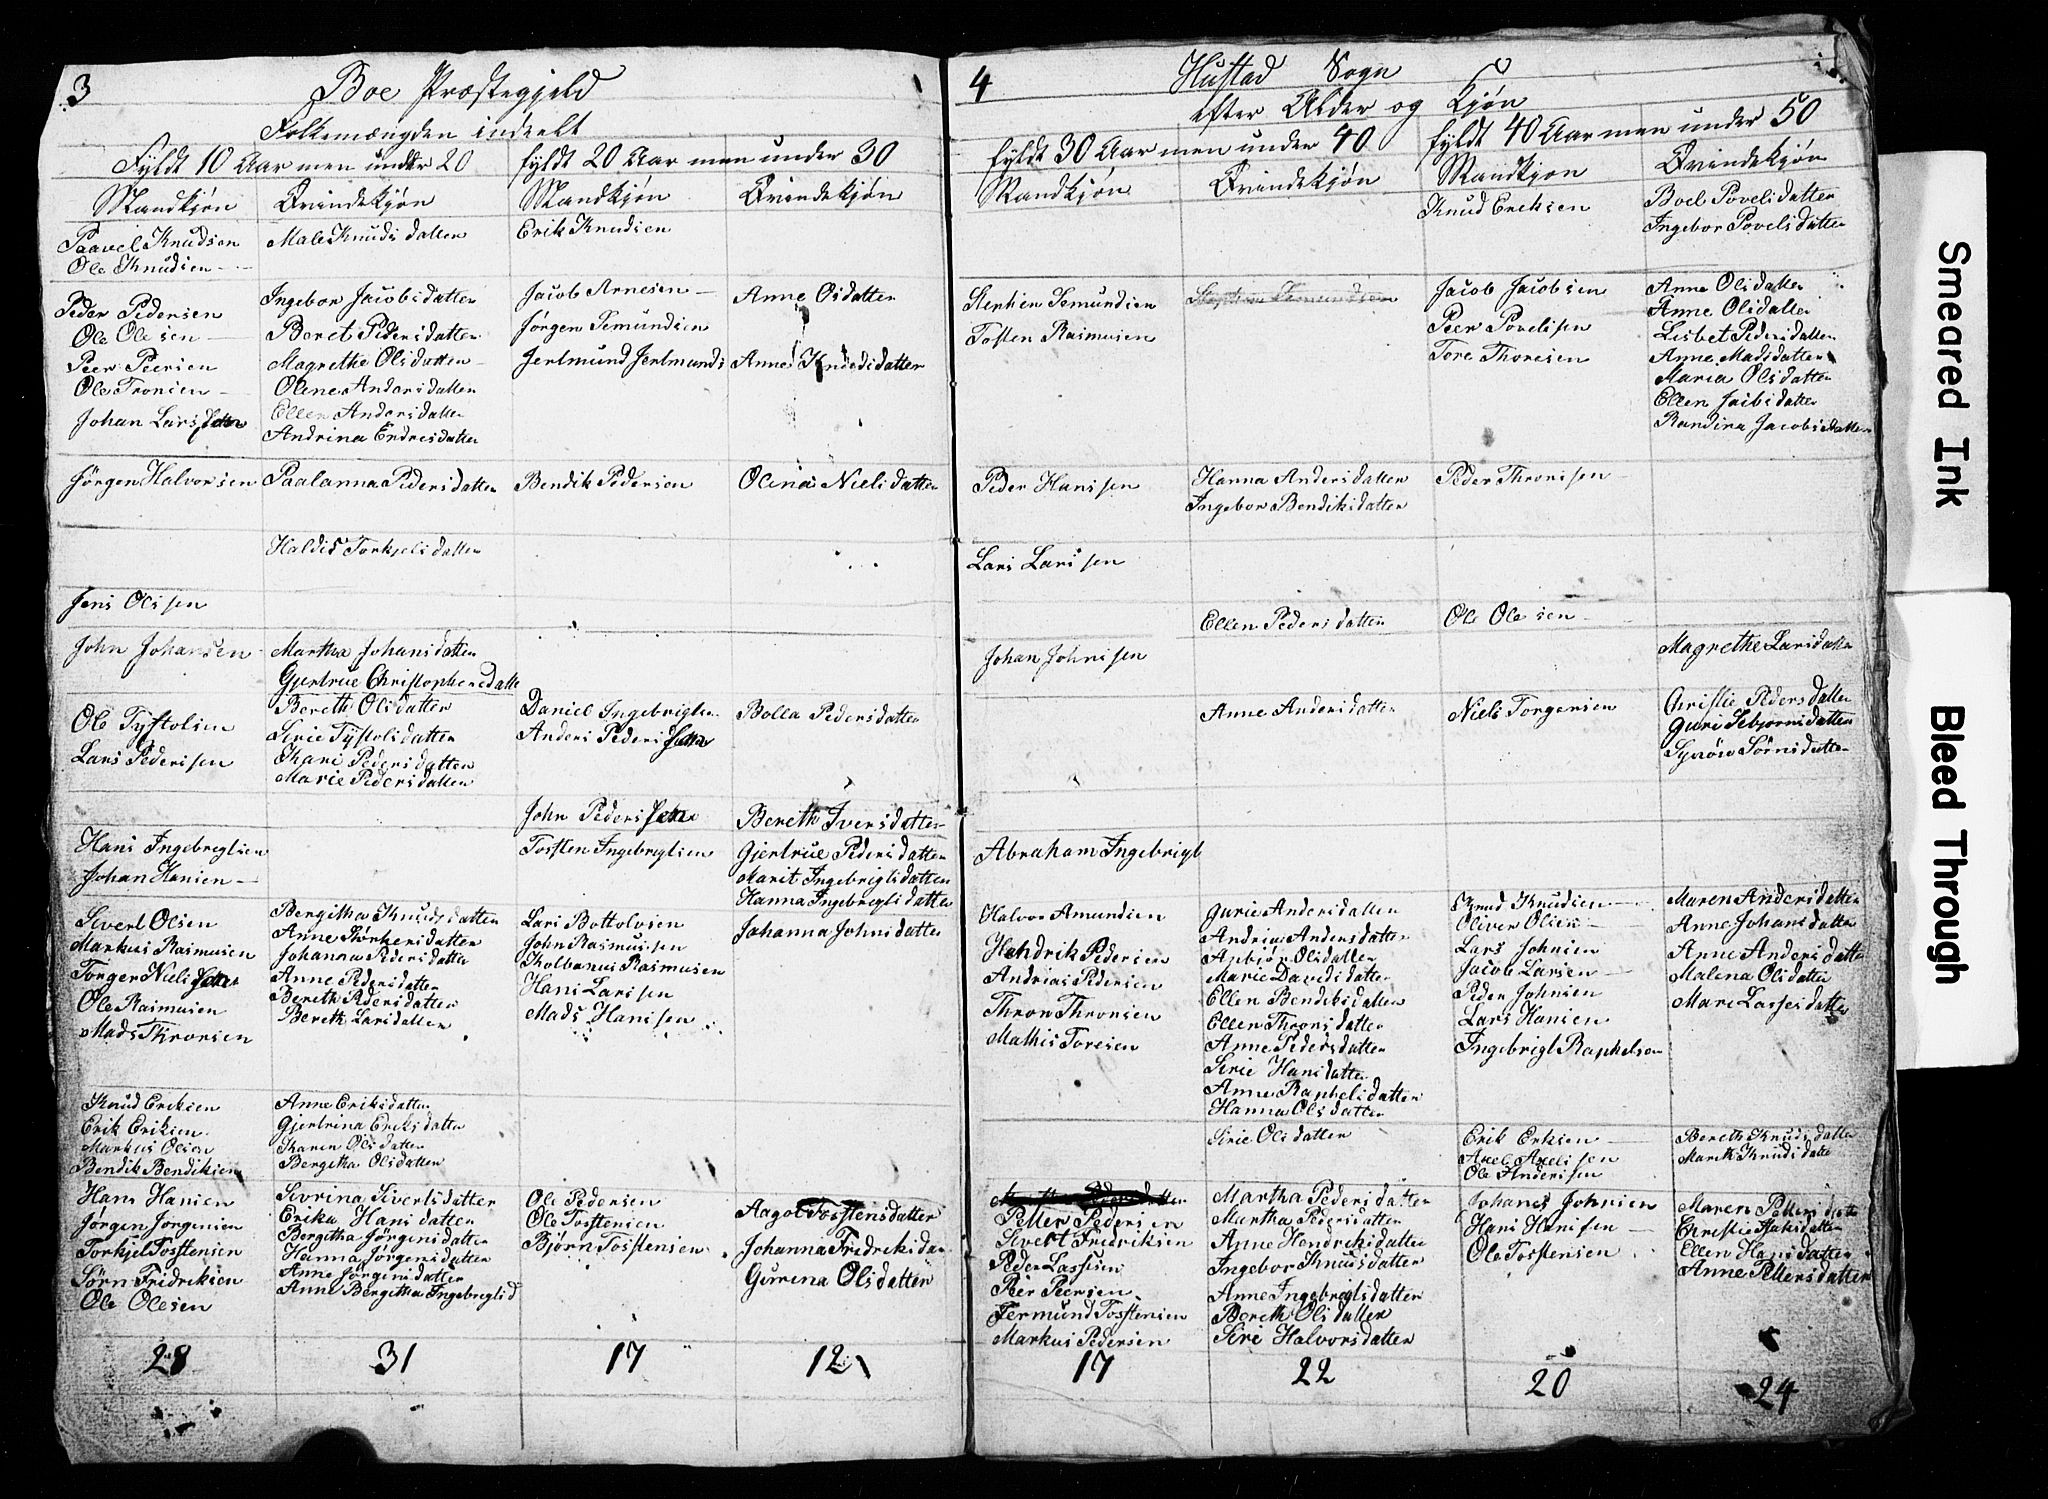 3
Boe Præstegjeld
Folkemængden indeelt
Fyldt 10 Aar men under 20
fyldt 20 Aar men under 30
Mandkjøn
Qvindekjøn
Mandkjøn
Qvindekjøn
Paavel Knudsen
Ole Knudsen
Male Knudsdatter
Erik Knudsen
Peder Pedersen
Ole Olesen
Peer Peersen
Ole Tronsen
Johan Lars
Ingebor Jacobsdatter
Beret Pedersdatter
Magrethe Olsdatter
Olene Andersdatter
Ellen Andersdatter
Andrina Endresdatter
Jacob Arnesen
Jørgen Semundsen
Jertmund Jertmunds
Anne Osdatter
Anne datter
Jørgen Halvorsen
Paalanna Pedersdatter
Bendik Pedersen
Olina Nielsdatter
Haldis Torkjelsdatter
Jens Olssen
John Johansen
Martha Johansdatter
Gjertrue Christophersdatte
Ole Tystolsen
Lars Pederssen
Bereth Olsdatter
Sirie Tystolsdatter
Kari Pedersdatter
Marie Pedersdatter
Daniel Ingebrigtsen
Anders Peders
Bolla Pedersdatter
Hans Ingebregtsen
Johan Hansen
John Peders
Tossten Ingebrigtsen
Bereth Iversdatter
Gjertrue Pedersdatter
Marit Ingebrigtsdatter
Hanna Ingebrigtsdatter
Sivert Olsen
Markus Rasmusen
Torger Niels
Ole Rasmusen
Mads Thronsen
Bergitha Knudsdatter
Anne datter
Johanna Pedersdatter
Anne Pedersdatter
Bereth Pedersdatter
Bereth Larsdatter
Lars Bottolvsen
John Rasmussen
Kolbanus Rasmusen
Hans Larssen
Mads Hanssen
Johanna Johnsdatter
Knud Eriksen
Erik Eriksen
Markus Olsen
Bendik Bendiksen
Anne Eriksdatter
Gjertrina Eriksdatter
Karen Olsdatter
Bergitha Olsdatter
Hans Hansen
Jørgen Jørgensen
Torkjel Tosstensen
Sørn Fridriksen
Ole Olesen
Sivrina Sivertsdatter
Erika Hansdatter
Bergitha Jørgensdatter
Hanna Jørgensdatter
Anne Jørgensdatter
Anne Bergitha Ingebregtsd
Ole Pedersen
Ole Tosstensen
Bjørn Tosstensen
Aagot Tosstensdatter
Johanna Fredriksdat
Gurina Olsdatter
28
31
17
12
4
Hustad Sogn
efter Alder og Kjøn
fyldt 30 Aar men under 40
fyldt 40 Aar men under 50
Mandkjøn
Qvindekjøn
Mandkjøn
Qvindekjøn
Knud Eriksen
Boel Povelsdatter
Ingebor Povelsdatter
Stephen Semundsen
Tosten Rasmusen
Jacob Jacobsen
Peer Povelssen
Tore Thoresen
Anne Olsdatter
Anne Olsdatter
Lisbet Pedersdatter
Anne Madsdatter
Maria Olsdatter
Ellen datter
Randina Jacobsdatter
Peder Hanssen
Hanna Andersdatter
Ingebor Bendiksdatter
Peder Thronssen
Lars Larssen
Ellen Pedersdatter
Ole Olesen
Johan Johnssen
Magrethe Larsdatter
Anne Andersdatter
Niels Torgersen
Christie Pedersdatter
Guri Sebjørnsdatter
Synøve Sørnsdatter
Abraham Ingebrigt
Halvor Amundsen
Hendrik Pedersen
Andrias Pedersen
Thron Thronsen
Mathis Toresen
Gurie Andersdatter
Andria Andersdatter
Anbjør Olsdatter
Marie Davidsdatter
Ellen Bendiksdatter
Ellen Thronsdatter
Anne Pedersdatter
Sirie Hansdatter
Anne Raphelsdatter
Hanna Olsdatter
Knud Knudsen
Oliver Olsen
Lars Johnsen
Jacob Larsen
Peder Johnsen
Lars Hansen
Ingebrigt Raphelsen
Maren Andersdatter
Anne Johansdatter
Anne Andersdatter
Malena Olsdatter
Mari Lassesdatter
Sirie Olsdatter
Erik Eriksen
Axel Axelssen
Ole Anderssen
Bereth Knudsdatter
Marith Knudsdatter
Petter Pedersen
Sivert Fredriksen
Peder Lassesen
Peer Peersen
Jermund Tosstensen
Markus Pedersen
Martha Pedersdatter
Martha Pedersdatter
Anne Hendriksdatter
Ingebor Knudsdatter
Anne Ingebrigtsdatter
Bereth Olsdatter
Siri Halvorsdatter
Johanes Johnsen
Hans Hanssen
Ole Tosstensen
Maren Pettersdatter
Christie datter
Ellen Hansdatter
Anne Pettersdatter
17
22
20
24
Smeared Ink
Bleed Through